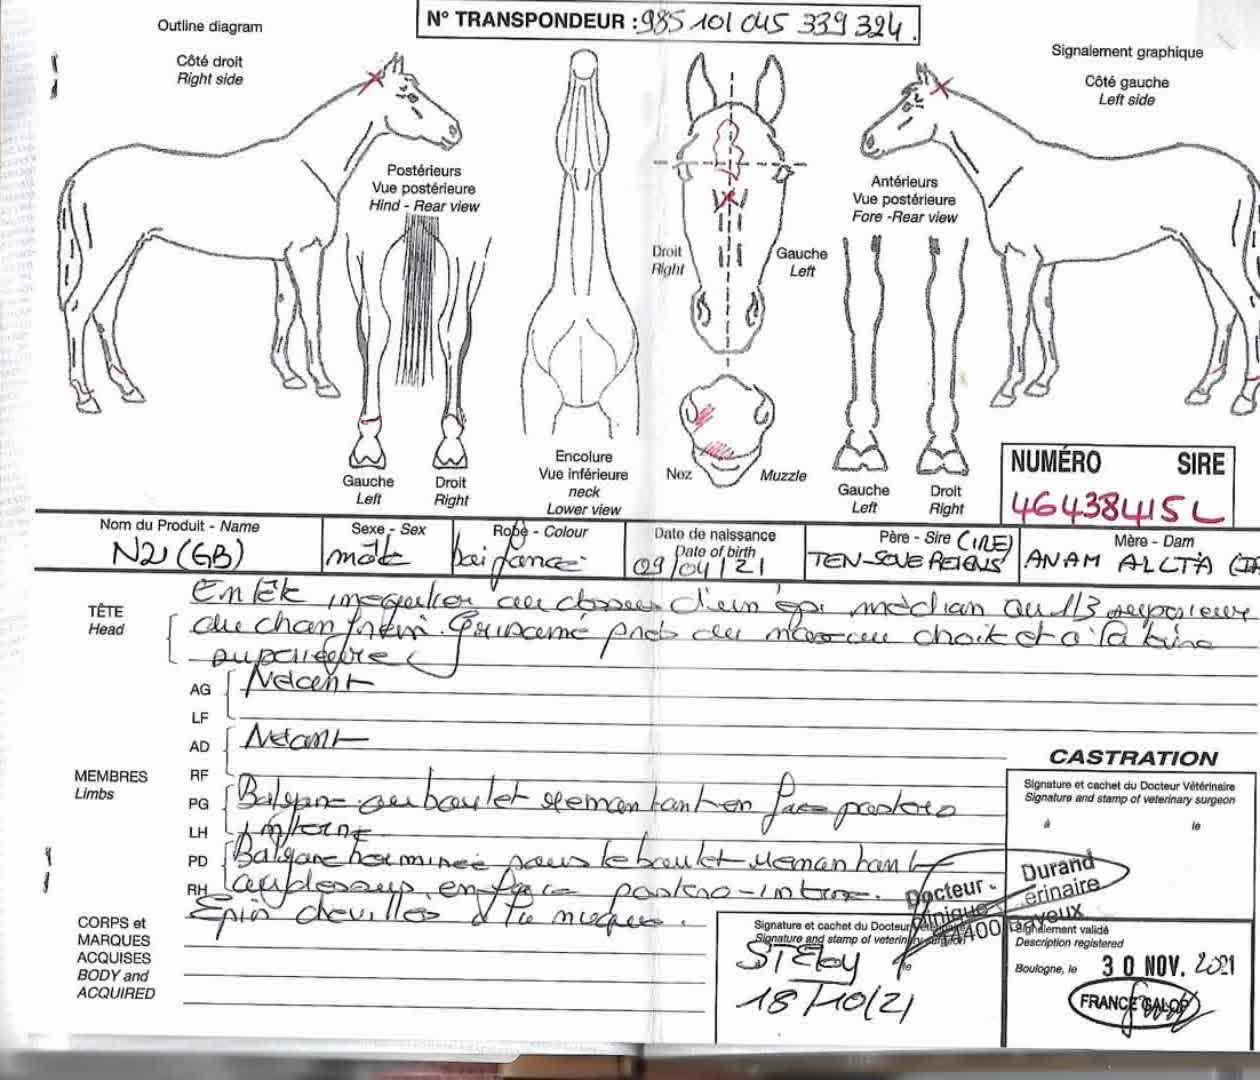 N° TRANSPONDEUR : 985 101 045 339 324.
Outline diagram
Côté droit
Right side
Signalement graphique
Côté gauche
Left side
Postérieurs
Vue postérieure
Hind - Rear view
Antérieurs
Vue postérieure
Fore -Rear view
Droit
Right
Gauche
Left
Encolure
Vue inférieure
neck
Lower view
Nez
Muzzle
Gauche
Left
Droit
Right
Gauche
Left
Droit
Right
NUMÉRO SIRE
46438415L
Nom du Produit - Name
N21 (GB)
Sexe - Sex
mâle
Robe - Colour
bai foncé
Date de naissance
Date of birth
09/04/21
Père - Sire (IRE)
TEN SOVEREIGNS
Mère - Dam
ANAM ALLTA
TÊTE
Head
En tête irrégulier au dessus d'un épi médian au 1/3 supérieur
du chanfrein. Grisonné près du naseau droit et à la
supérieure
AG
LF
Néant
AD
RF
Néant
MEMBRES
Limbs
PG
LH
Balzane au boulet remontant en face postéro
interne
PD
RH
Balzane herminée sous le boulet remontant
au dessus en face postéro-interne.
CORPS et
MARQUES
ACQUISES
BODY and
ACQUIRED
Epis
CASTRATION
Signature et cachet du Docteur Vétérinaire
Signature and stamp of veterinary surgeon
à le
Docteur Durand
Signature et cachet du Docteur
Signature and stamp of veterinary surgeon
18/10/21
Signalement validé
Description registered
Boulogne, le 30 NOV. 2021
FRANCE GALOP